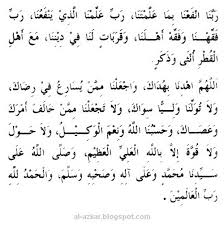 رَبَّنَا انْفَعْنَا بِمَا عَلَّمْتَنَا، رَبِّ عَلِّمْنَا الَّذِيْ يَنْفَعُنَا، رَبِّ
فَقِّهْنَا وَفَقِّهْ أَهْلَنَا، وَقَرَابَاتٍ لَنَا فِيْ دِيْنِنَا، مَعَ أَهْلِ
الْقُطْرِ أُنْثَى وَذَكَرِ.
اللَّهُمَّ اهْدِنَا بِهُدَاكَ، وَاجْعَلْنَا مِمَّنْ يُسَارِعُ فِيْ رِضَاكَ،
وَلَا تُوَلِّنَا وَلِيًّا سِوَاكَ، وَلَا تَجْعَلْنَا مِمَّنْ خَالَفَ أَمْرَكَ
وَعَصَاكَ، وَحَسْبُنَا اللَّهُ وَنِعْمَ الْوَكِيْلُ، وَلَا حَوْلَ
وَلَا قُوَّةَ إِلَّا بِاللَّهِ الْعَلِيِّ الْعَظِيْمِ، وَصَلَّى اللَّهُ عَلَى
سَيِّدِنَا مُحَمَّدٍ وَعَلَى آلِهِ وَصَحْبِهِ وَسَلَّمَ، وَالْحَمْدُ لِلَّهِ
رَبِّ الْعَالَمِيْنَ.
al-azkar.blogspot.com